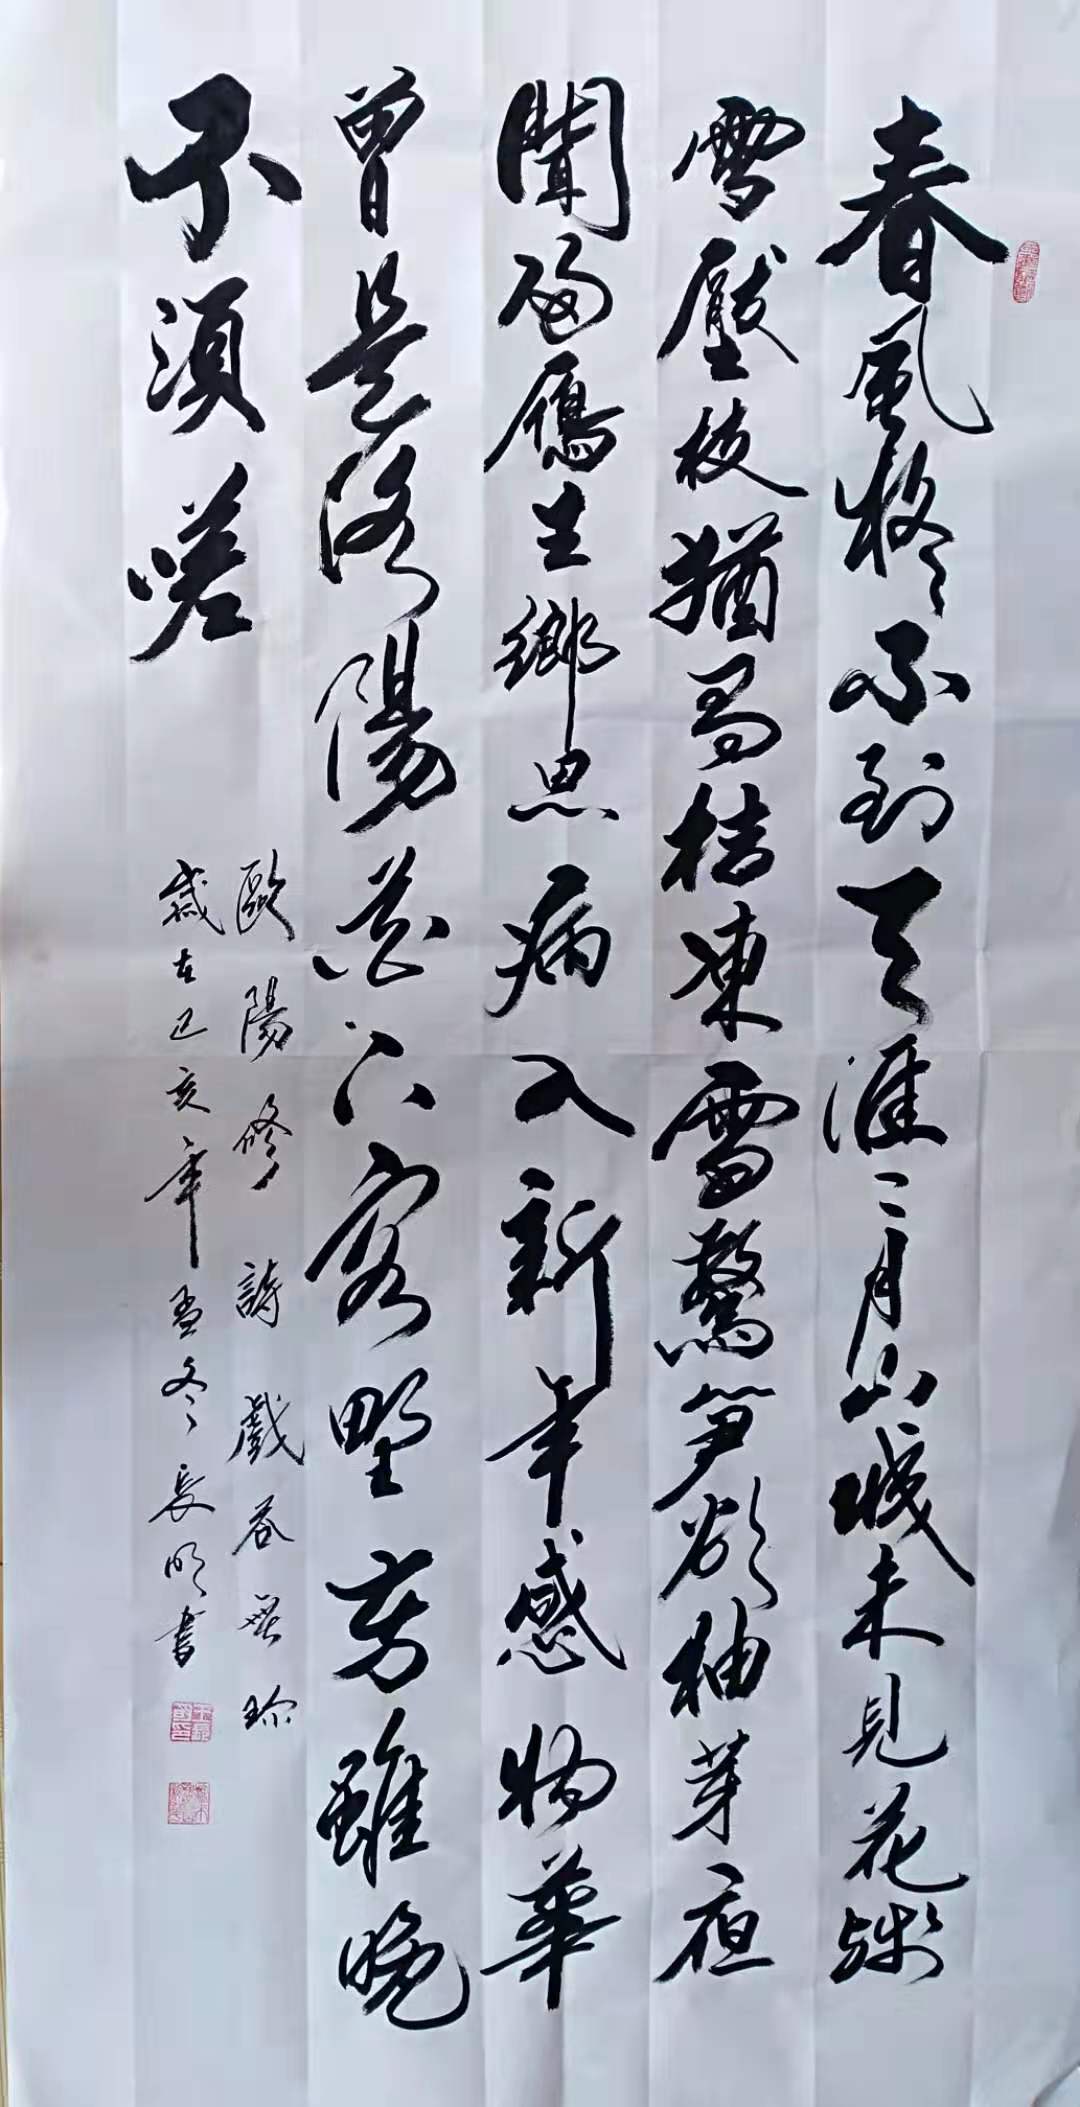 春風疑不到天涯二月山城未見花殘
雪壓枝猶有桔凍雷驚笋欲抽芽夜
聞歸鴈生鄉思病入新年感物華
曾是洛陽花下客野芳雖晚
不須嗟
歐陽修詩戲答元珍
歲在己亥年孟冬長明書